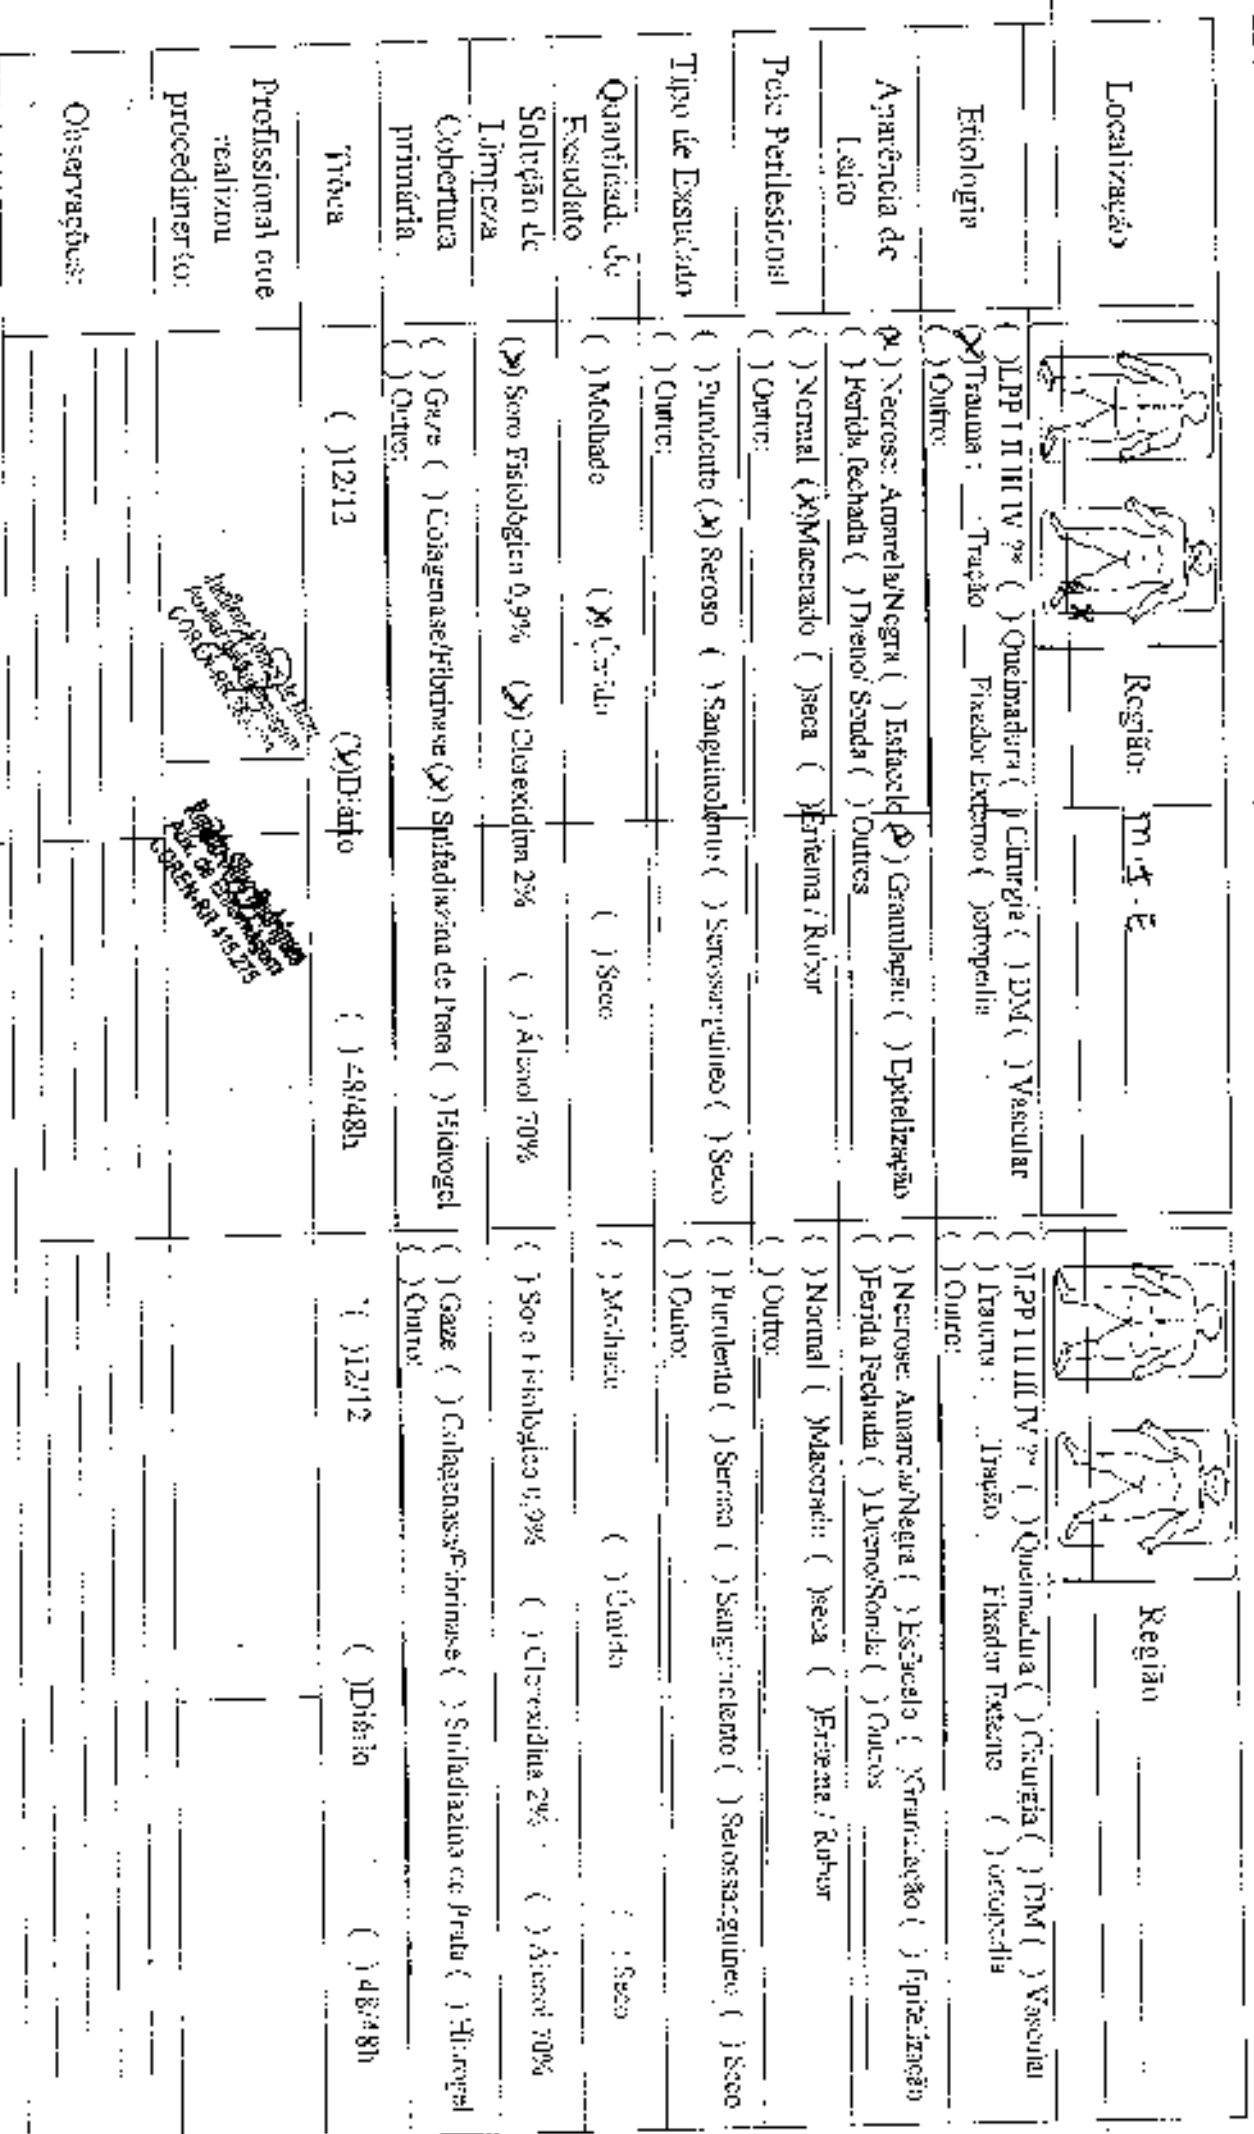 Localização
Região: M.I.E
Região
Etiologia
( )LPP I II III IV ?* ( ) Queimadura ( ) Cirurgia ( ) DM ( ) Vascular
(X)Trauma : __ Tração __ Fixador Externo ( )ortopedia
( ) Outro:
( )LPP I II III IV ?* ( ) Queimadura ( ) Cirurgia ( ) DM ( ) Vascular
( ) Trauma : Tração Fixador Externo ( ) ortopedia
( ) Outro:
Aparência do
Leito
(X) Necrose: Amarela/Negra ( ) Esfacelo (X) Granulação ( ) Epitelização
( ) Ferida fechada ( ) Dreno/ Sonda ( ) Outros
( ) Necrose: Amarela/Negra ( ) Esfacelo ( )Granulação ( ) Epitelização
( )Ferida Fechada ( ) Dreno/Sonda ( ) Outros
Pele Perilesional
( ) Normal (X)Macerado ( )seca ( )Eritema / Rubor
( ) Outro:
( ) Normal ( )Macerado ( )seca ( )Eritema / Rubor
( ) Outro:
Tipo de Exsudato
( ) Purulento (X) Seroso ( ) Sanguinolento ( ) Serossanguíneo ( ) Seco
( ) Outro:
( ) Purulento ( ) Seroso ( ) Sanguinolento ( ) Serossanguineo ( ) Seco
( ) Outro:
Quantidade de
Exsudato
( ) Molhado (X) Úmido ( ) Seco
( ) Molhado ( ) Úmido ( ) Seco
Solução de
Limpeza
(X) Soro Fisiológico 0,9% (X) Clorexidina 2% ( ) Álcool 70%
( ) Soro Fisiológico 0,9% ( ) Clorexidina 2% ( ) Álcool 70%
Cobertura
primária
( ) Gaze ( ) Colagenase/Fibrinase (X) Sulfadiazina de Prata ( ) Hidrogel
( ) Outro:
( ) Gaze ( ) Colagenase/Fibrinase ( ) Sulfadiazina de Prata ( ) Hidrogel
( ) Outro:
Troca
( )12/12 (X)Diário ( ) 48/48h
( )12/12 ( )Diário ( ) 48/48h
Profissional que
realizou
procedimento:
Aux. de Enfermagem
COREN-RR 415.275
Observações: